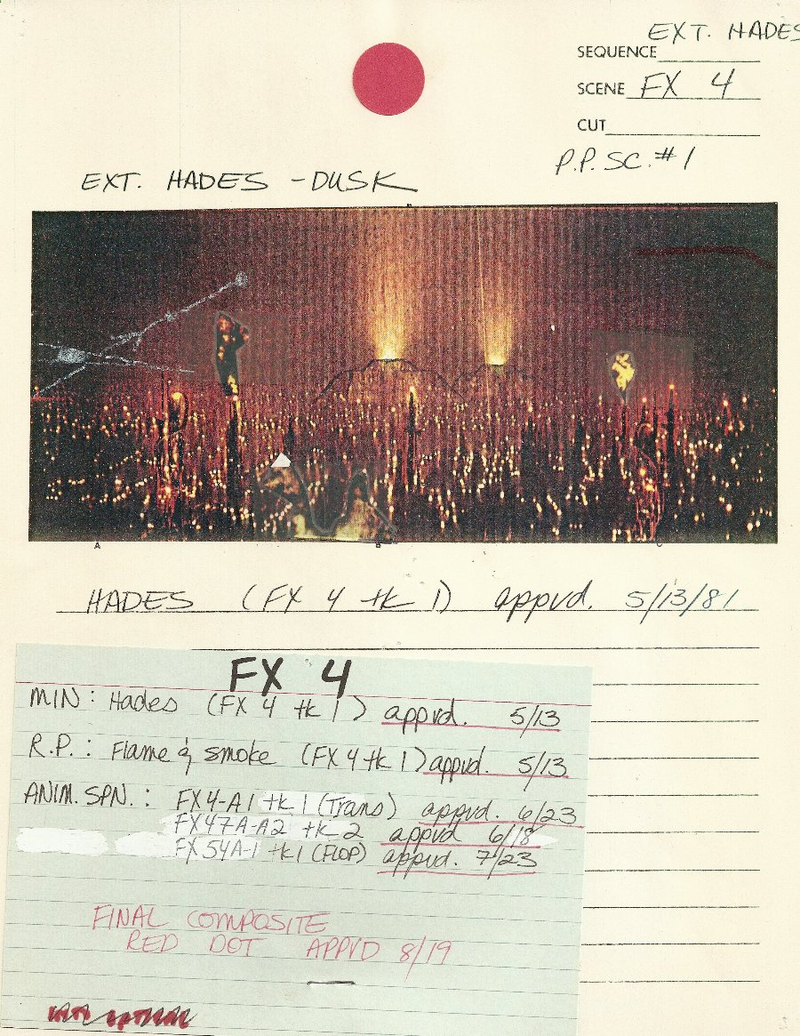 EXT. HADES
SEQUENCE
SCENE FX 4
CUT
P.P. SC. #1
EXT. HADES - DUSK
A B C
HADES (FX 4 tk 1) appvd. 5/13/81
FX 4
MIN: Hades (FX 4 tk 1) appvd. 5/13
R.P.: Flame & smoke (FX 4 tk 1) appvd. 5/13
ANIM. SPN.: FX4-A1 tk 1 (Trans) appvd. 6/23
FX47A-A2 tk 2 appvd 6/18
FX54A-1 tk1 (FLOP) appvd. 7/23
FINAL COMPOSITE
RED DOT APPVD 8/19